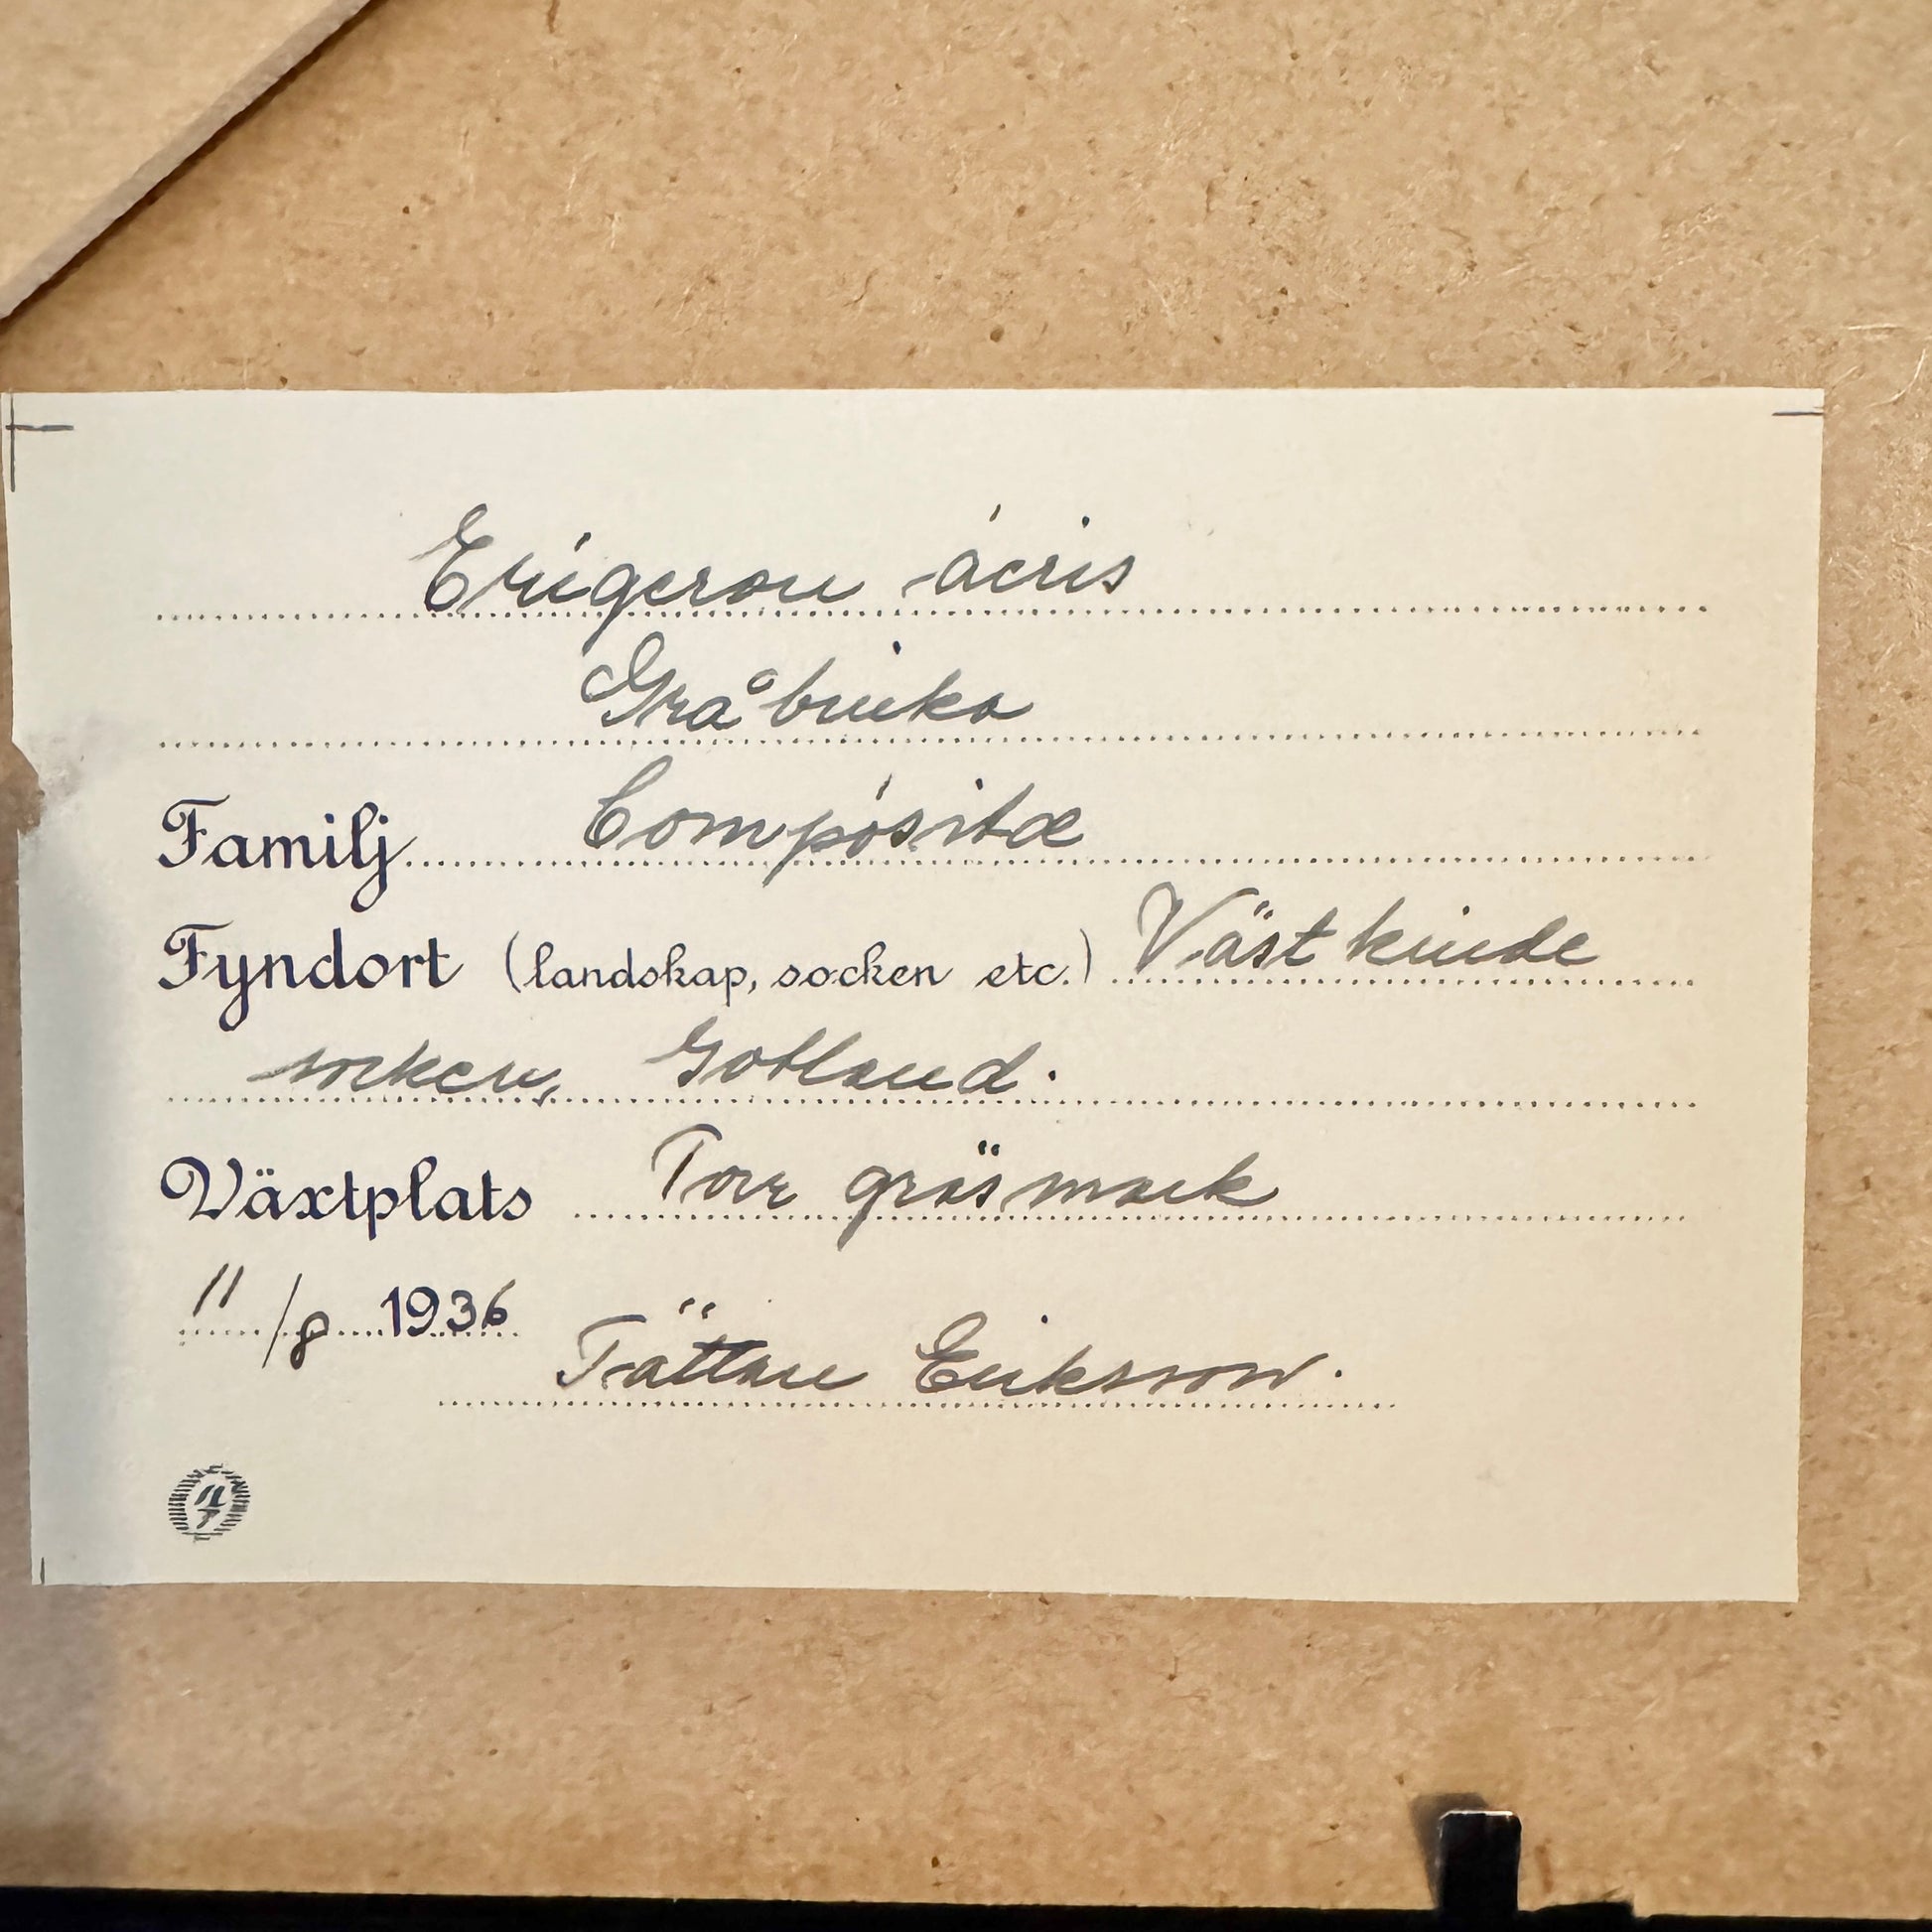 Erígeron ácris
Gråbinka
Familj Compósitæ
Fyndort (landskap, socken etc.) Västkinde
socken, Gotland.
Växtplats Torr gräsmark
11/8 1936
Tättan Eriksson.